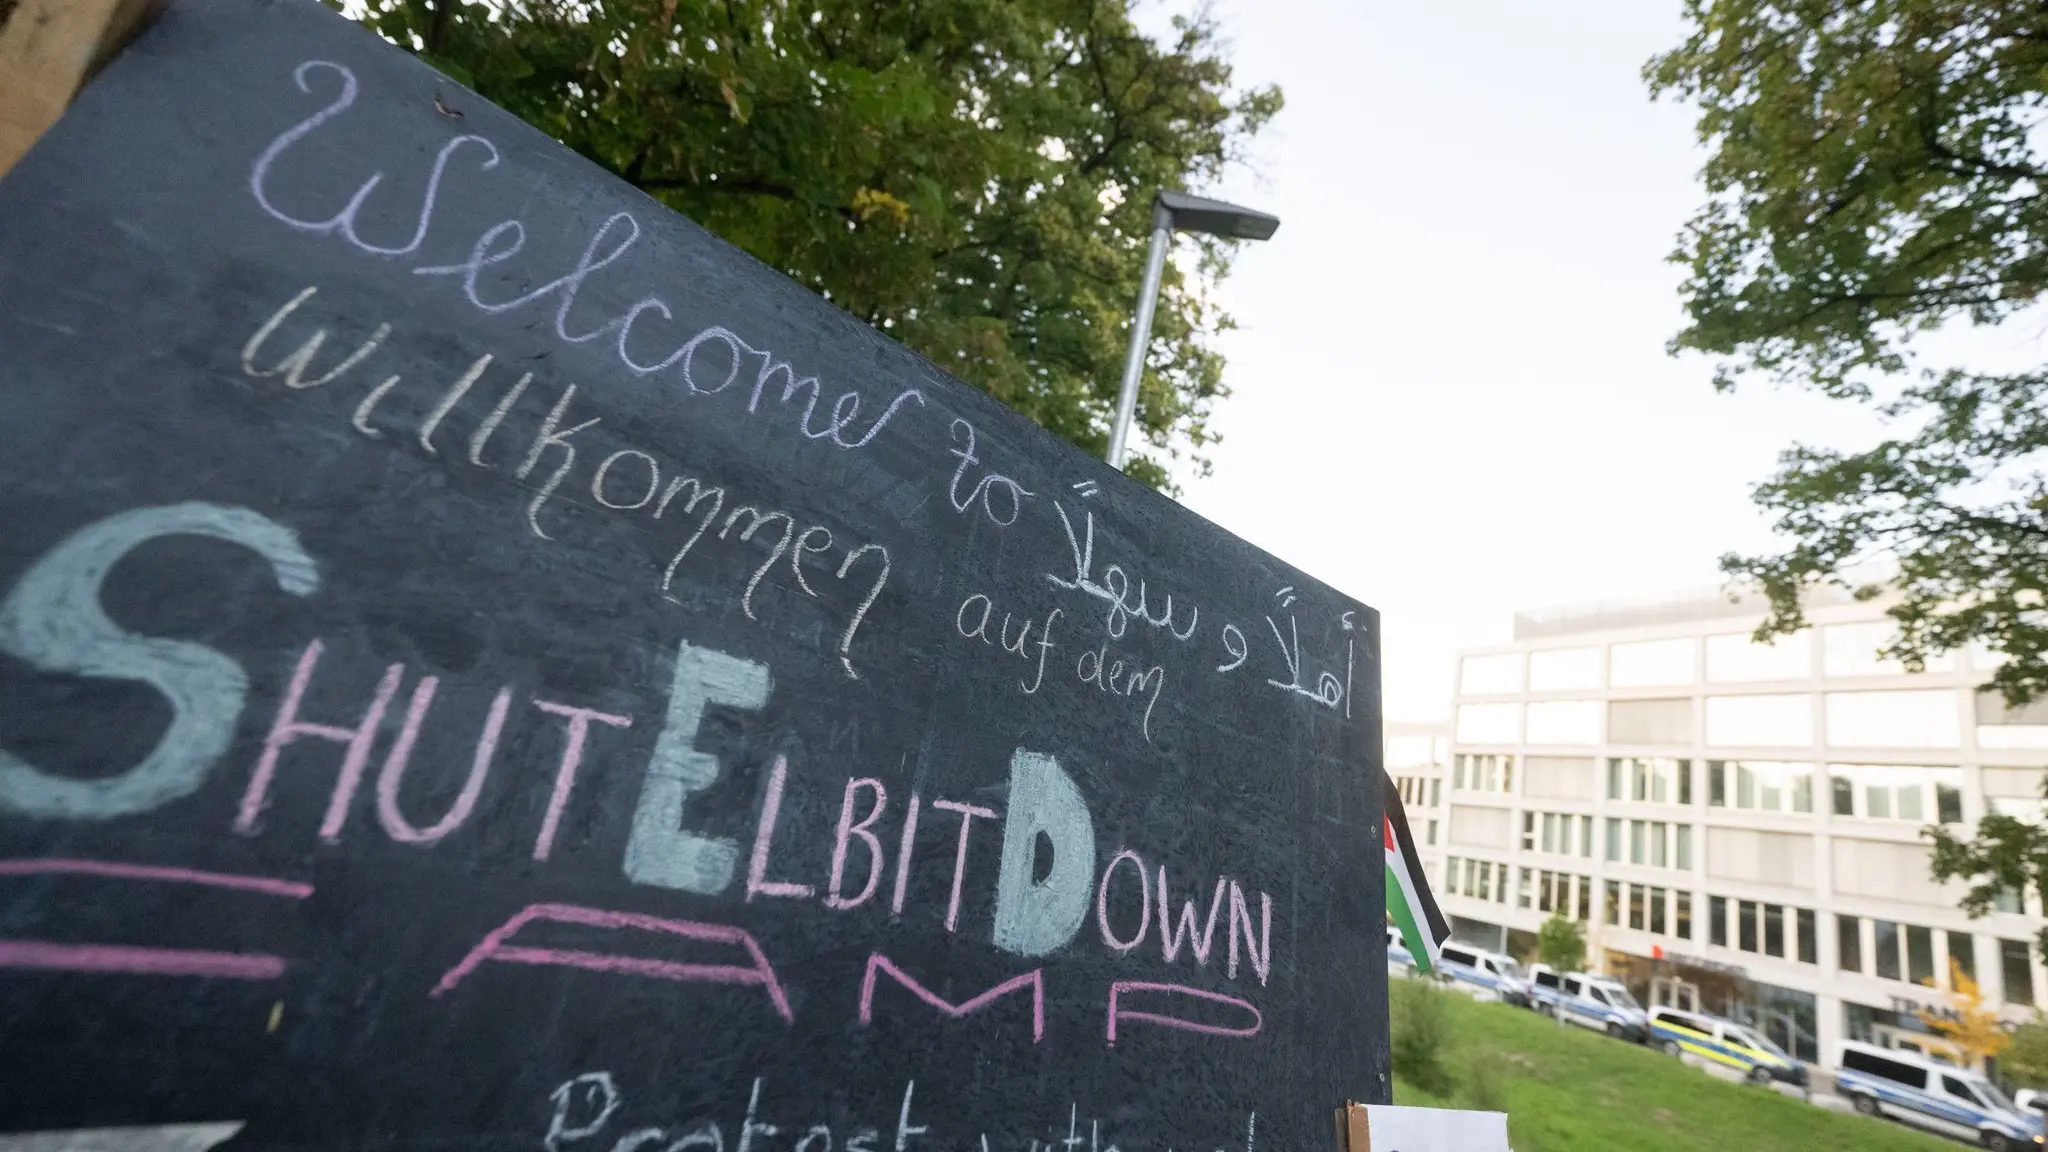 Welcome to أهلاً و سهلاً
Willkommen auf dem
SHUTELBITDOWN
CAMP
Protest with
TRAN